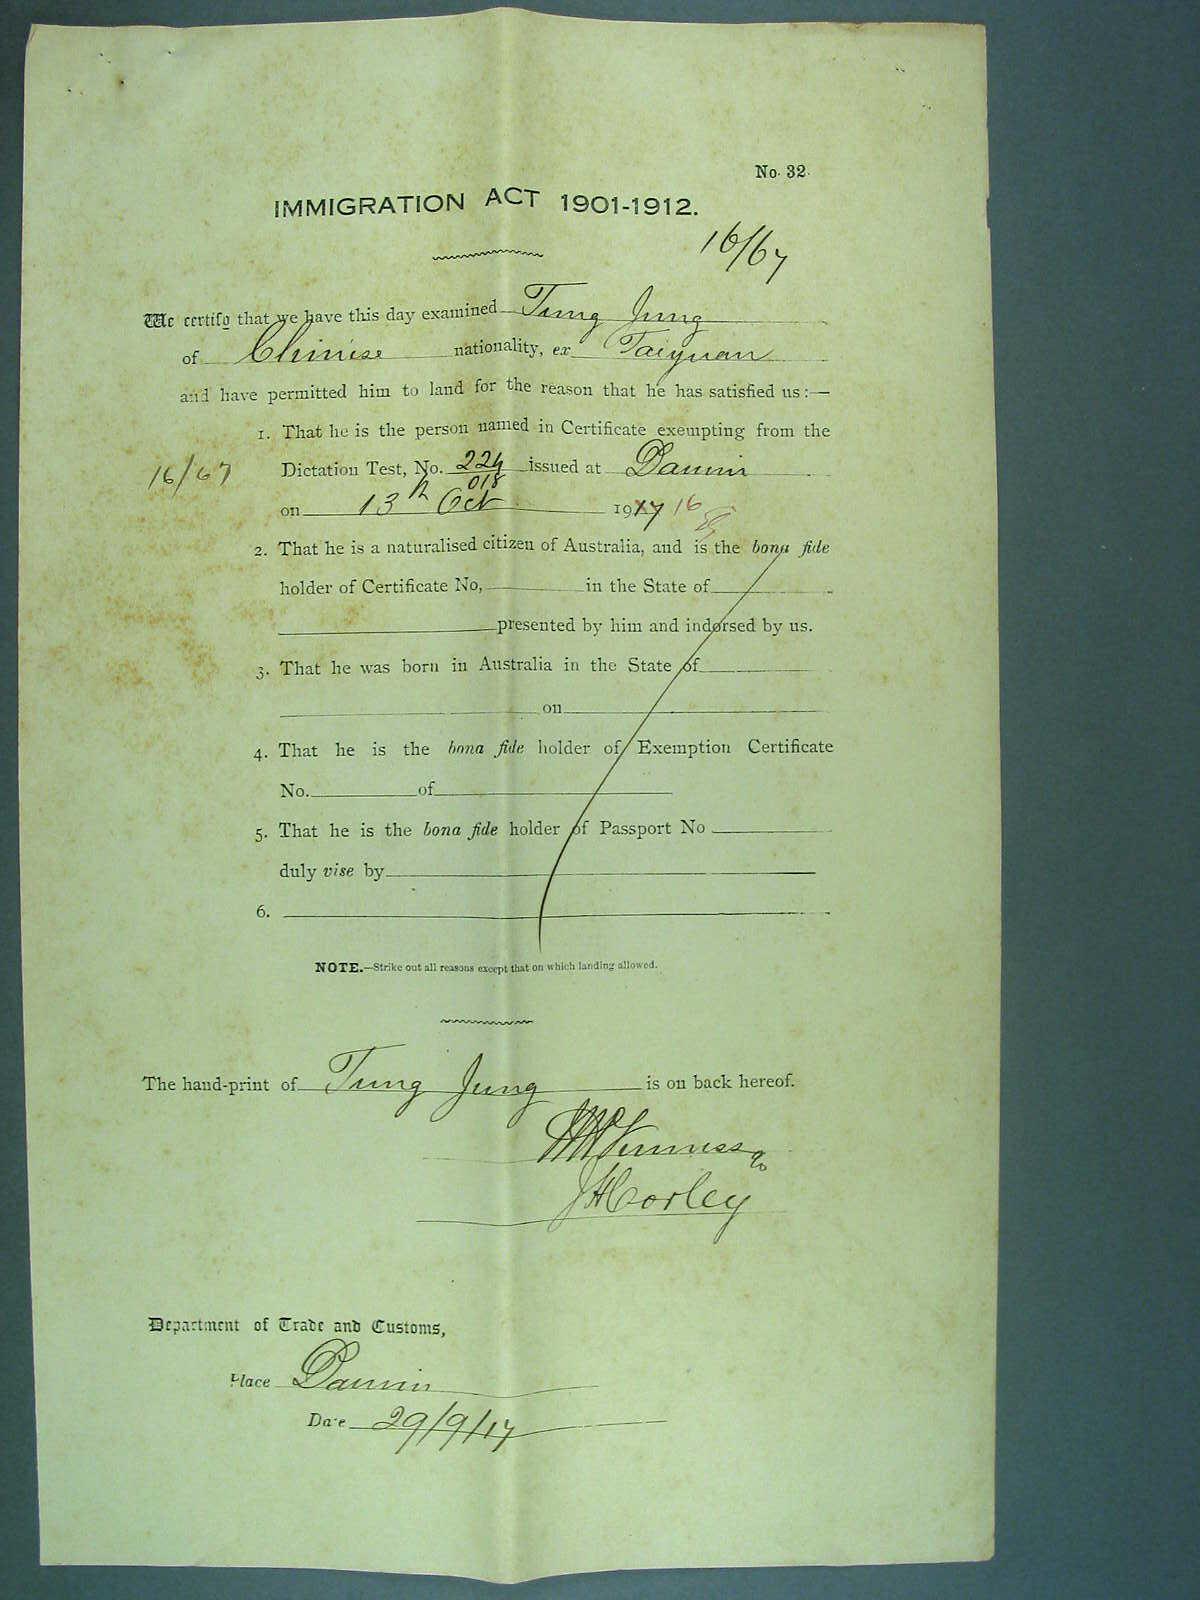 No. 32.
IMMIGRATION ACT 1901-1912.
16/67
We certify that we have this day examined Tung Jung
of Chinese nationality, ex Taiyuan
and have permitted him to land for the reason that he has satisfied us:—
1. That he is the person named in Certificate exempting from the
16/67 Dictation Test, No. 224/018 issued at Darwin
on 13th Oct 1917 16
2. That he is a naturalised citizen of Australia, and is the bona fide
holder of Certificate No, in the State of
presented by him and indorsed by us.
3. That he was born in Australia in the State of
on
4. That he is the bona fide holder of Exemption Certificate
No. of
5. That he is the bona fide holder of Passport No
duly vise by
6.
NOTE.—Strike out all reasons except that on which landing allowed.
The hand-print of Tung Jung is on back hereof.
JHCorley
Department of Trade and Customs,
Place Darwin
Date 29/9/17